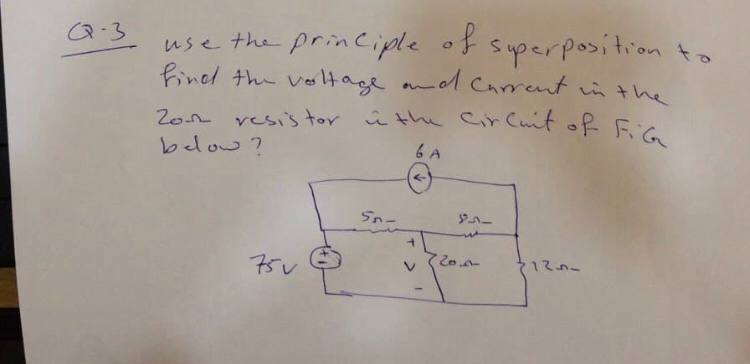 Q-3 use the principle of superposition to
find the voltage and current in the
20Ω resistor in the circuit of FiG
below?
6 A
5Ω 8Ω
75 V + - + V - 20Ω 12Ω